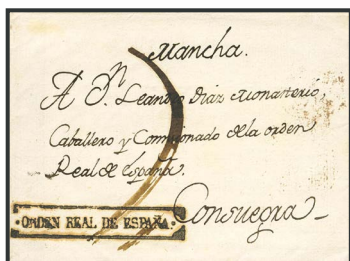 Mancha.
A Dn Leandro Diaz Monasterio,
Caballero y Comisionado de la orden
Real de España.
·ORDEN REAL DE ESPAÑA·
Consuegra